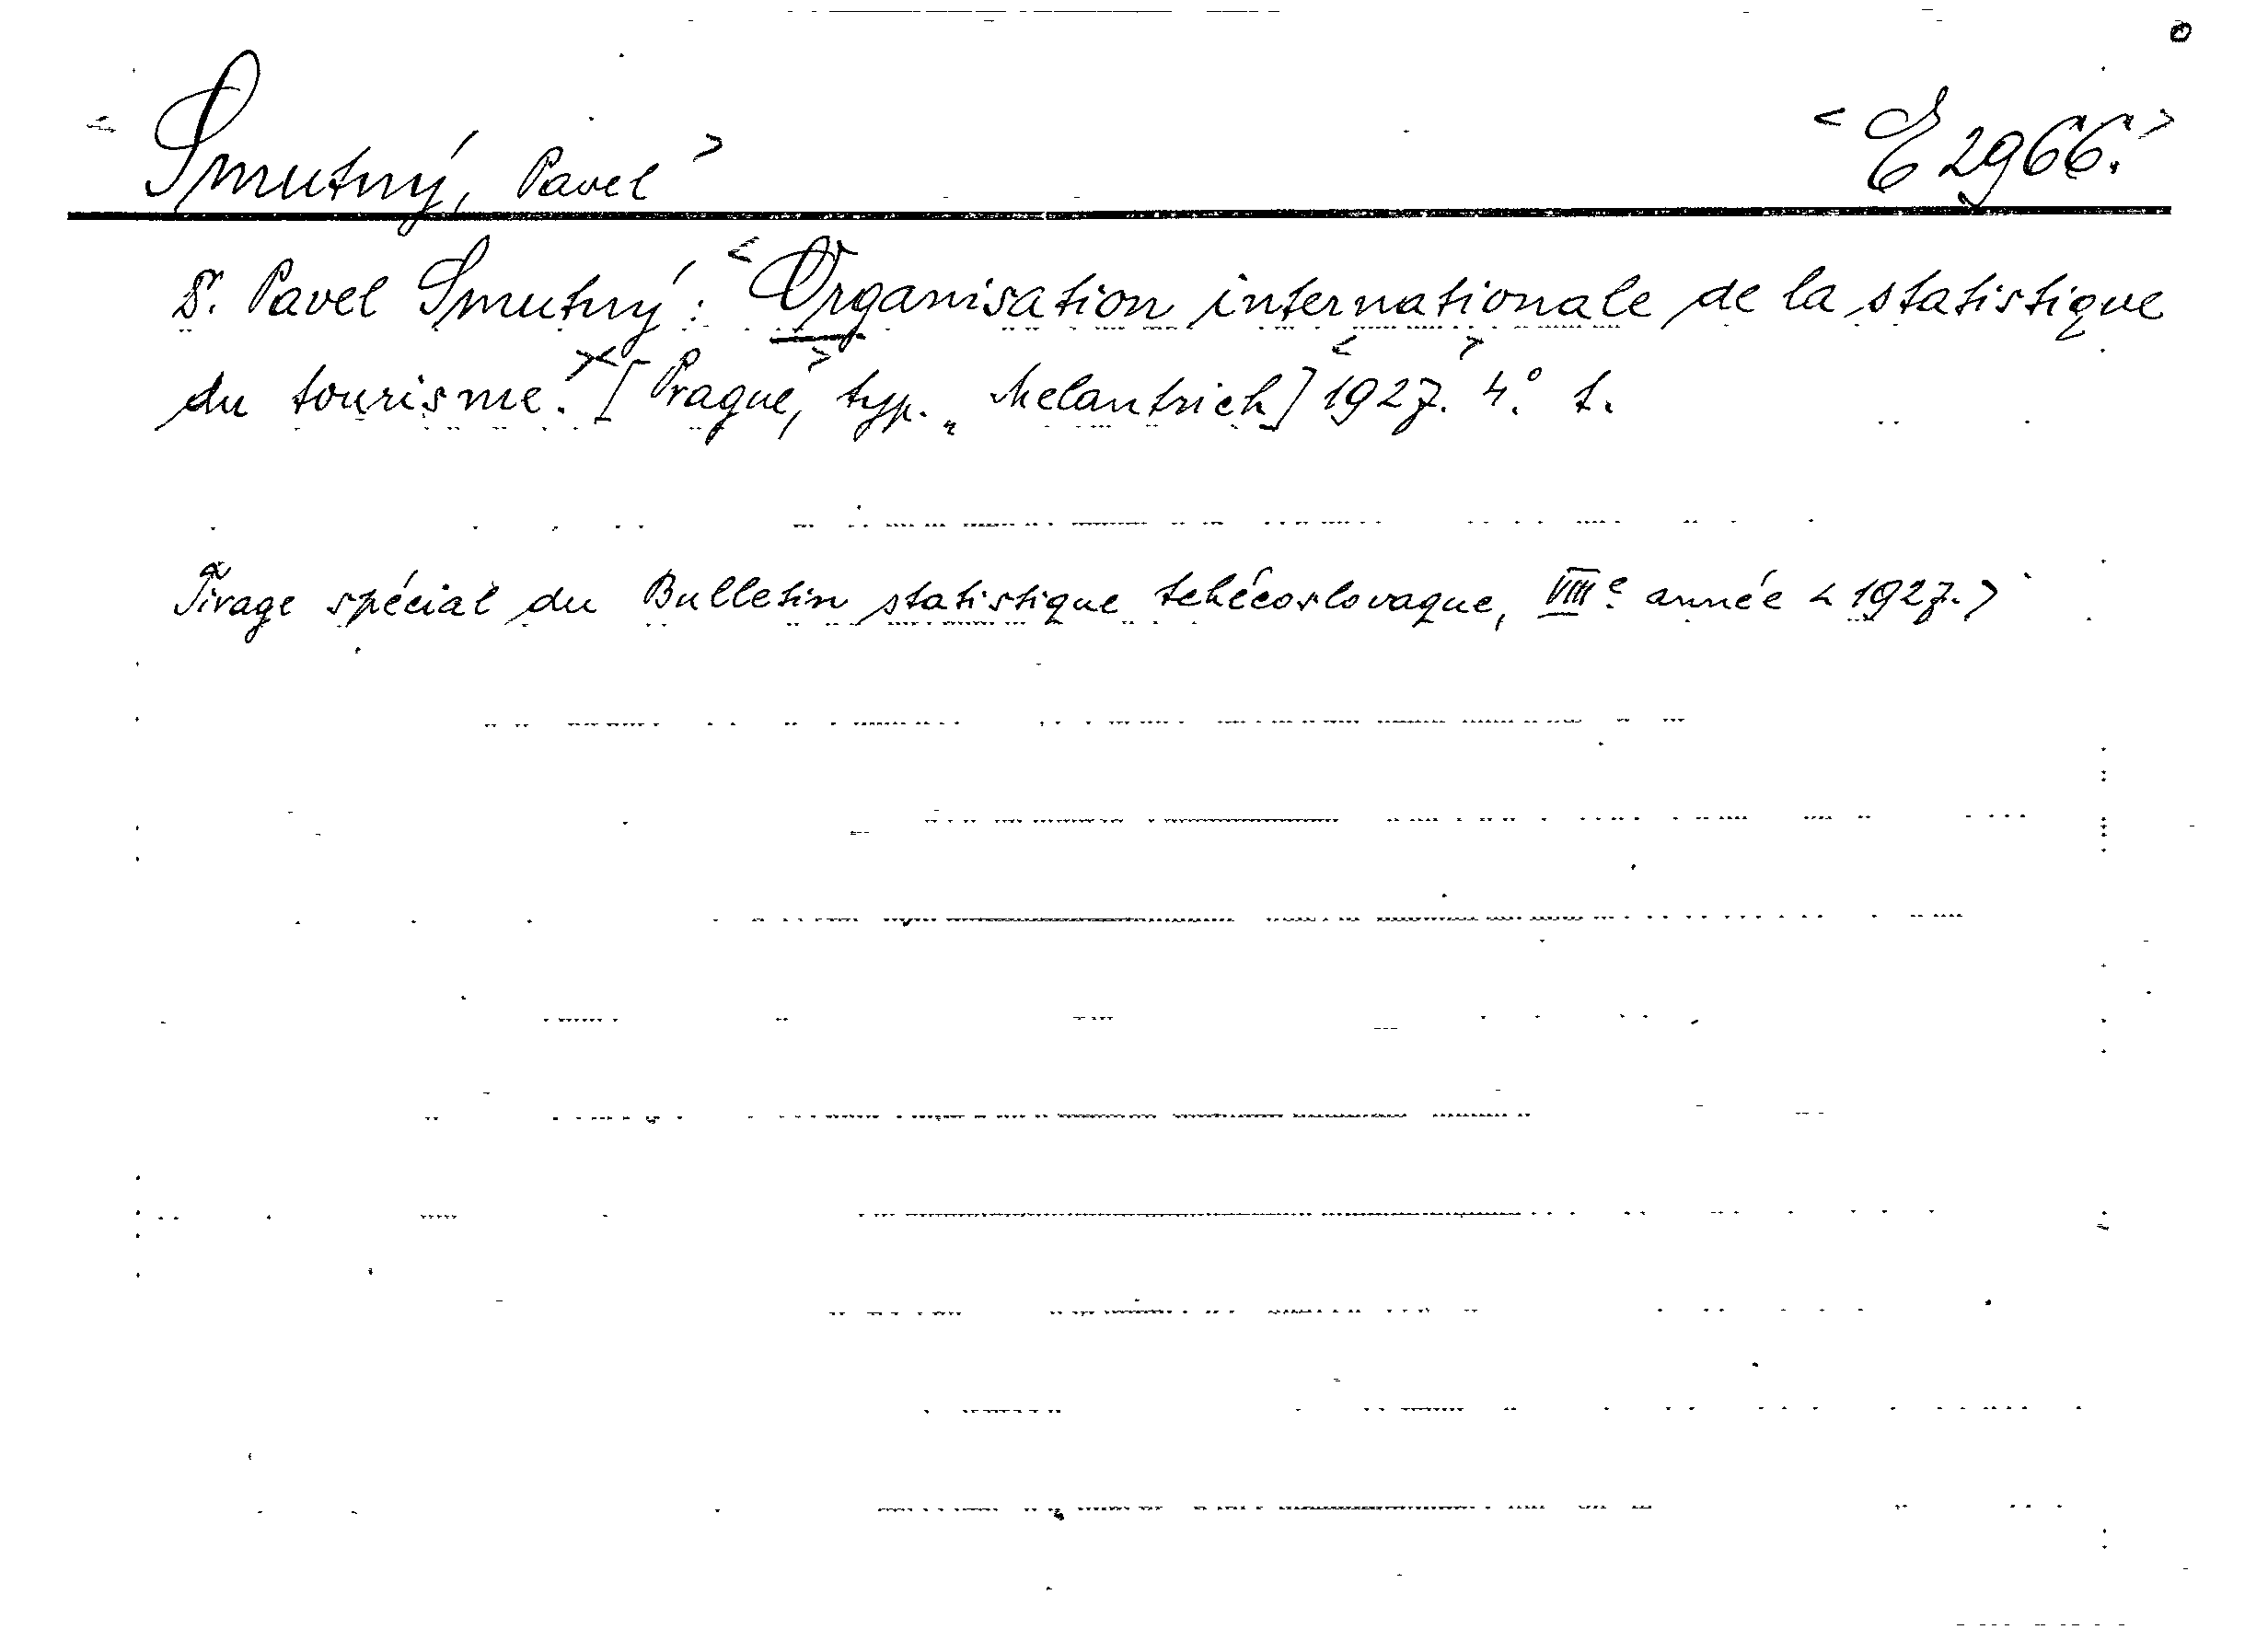 < Smutný, Pavel > < E 2966. >
Dr. Pavel Smutný: < Organisation internationale de la statistique
du tourisme. > < [Prague, > typ. „Melantrich] < 1927. > 4.° 1.
Tirage spécial du Bulletin statistique tchécoslovaque, VIII.e année < 1927. >